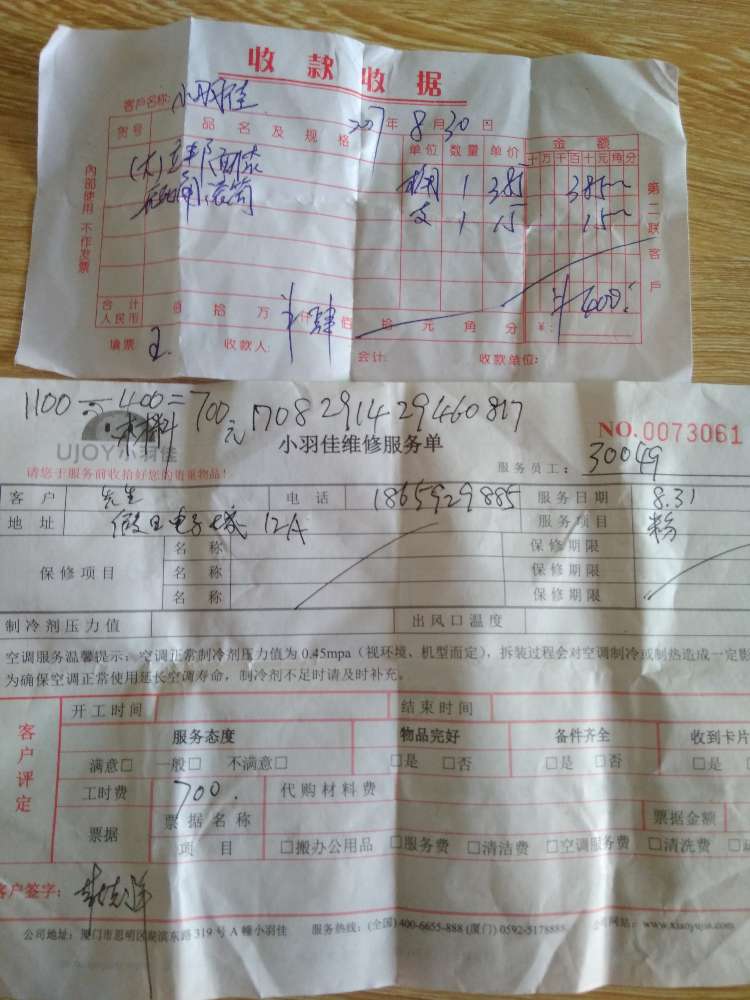 收款收据
客户名称: 小羽佳
2017年8月30日
货号 品名及规格 单位 数量 单价 金额
十万千百十元角分
(大)立邦 桶 1 385 385
滚筒 支 1 15 15
内部使用 不作发票
第二联 客户
合计人民币 佰 拾 万 仟 肆佰 拾 元 角 分 ¥: ¥400
填票 收款人 会计: 收款单位:
1100-400=700元 1708291429460817
材料
UJOY小羽佳 小羽佳维修服务单 NO.0073061
请您于服务前收拾好您的贵重物品! 服务员工: 30049
客户 先生 电话 1865929885 服务日期 8.31
地址 假日电子城 12A 服务项目 粉
保修项目 名称 保修期限
名称 保修期限
名称 保修期限
制冷剂压力值 出风口温度
空调服务温馨提示: 空调正常制冷剂压力值为 0.45mpa(视环境、机型而定), 拆装过程会对空调制冷或制热造成一定影
为确保空调正常使用延长空调寿命, 制冷剂不足时请及时补充。
客户评定
开工时间 结束时间
服务态度 物品完好 备件齐全 收到卡片
满意□ 一般□ 不满意□ □是 □否 □是 □否 □是
工时费 700. 代购材料费
票据 票据名称 票据金额
项目 □搬办公用品 □服务费 □清洁费 □空调服务费 □清洗费
客户签字:
公司地址: 厦门市思明区莫滨东路319号A幢小羽佳 服务热线: (全国)400-6655-888 (厦门)0592-5178888 公司网站: www.xiaoyujia.com